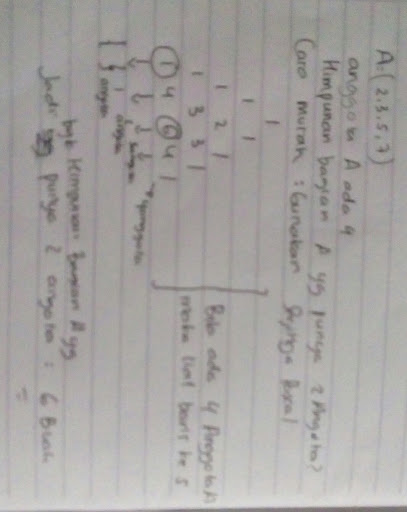 A = {2.3.5.7}
anggota A ada 4
Himpunan bagian A yg punya 2 Anggota?
Cara murah : Gunakan Segitiga Pascal
1
1 1
1 2 1
1 3 3 1
1 4 6 4 1
Bila ada 4 Anggota A
maka lihat baris ke 5
anggota
byk Himpunan Bagian A yg
Jadi punya 2 anggota : 6 Buah